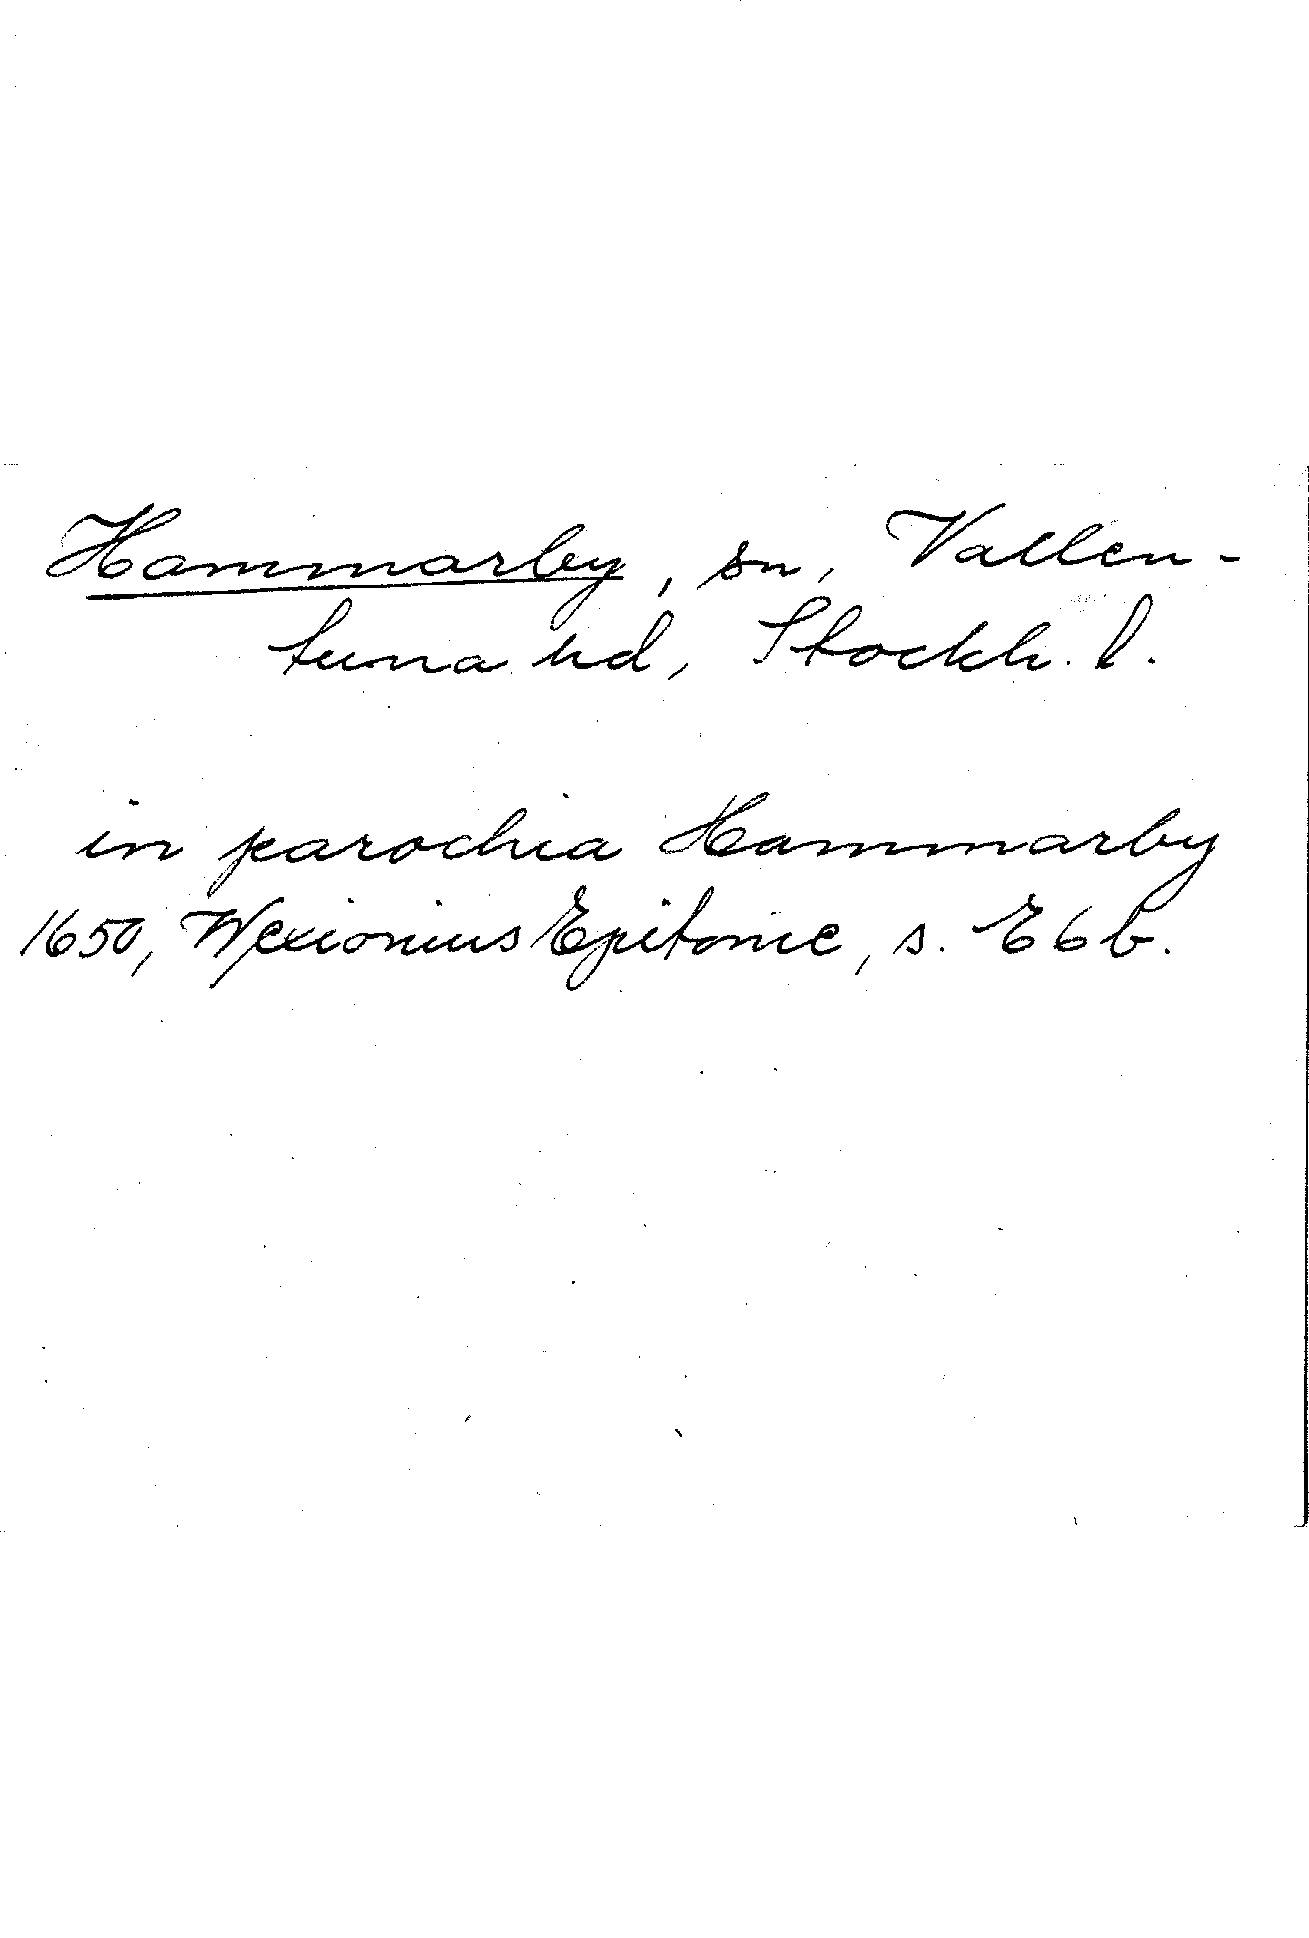 Hammarby, sn, Vallen-
tuna hd, Stockh. l.
in parochia Hammarby
1650, Wexionius Epitome, s. E6b.